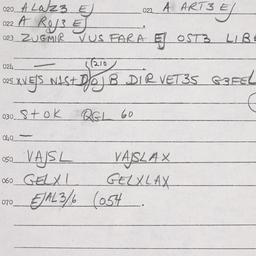 020 ALAZ3 EJ 021 A ART3 EJ
022 A ROJ3 EJ
023 ZUGMIR VUS FARA EJ OST3 LIB
024 — (210)
025 XVEJS N1ST B DIR VET3S G3FEL
030 STOK QGL 60
040 —
050 VAJSL VAJSLAX
060 GELXI GELXLAX
070 EJAL3/6 (054